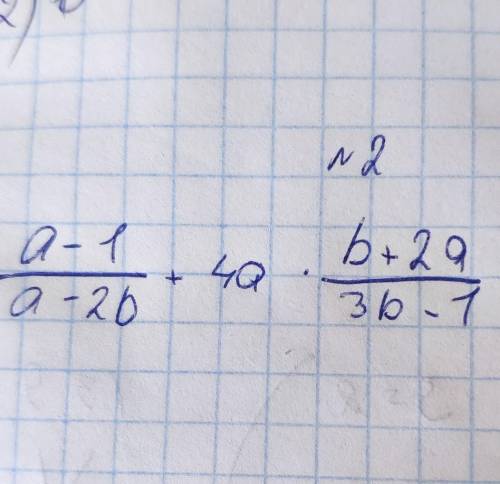 2)
№2
a - 1 / a - 2b + 4a · b + 2a / 3b - 1